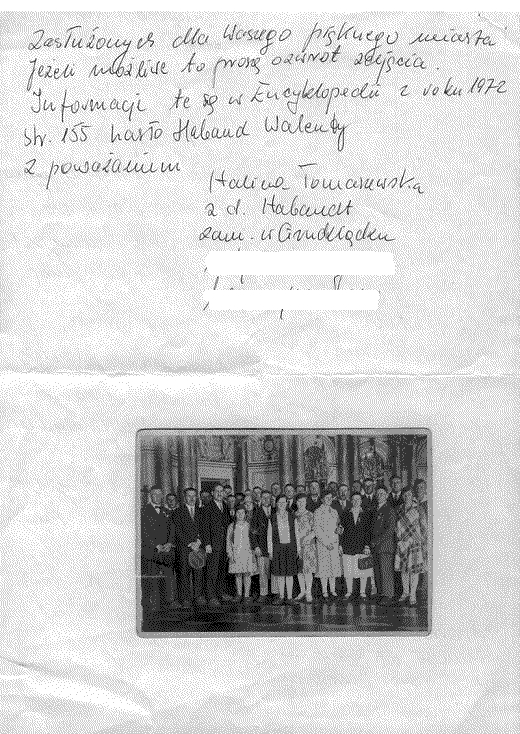 Zasłużonych dla Waszego pięknego miasta
Jeżeli możliwe to proszę o zwrot zdjęcia.
Informacje te są w Encyklopedii z roku 1972
str. 155 hasło Haband Walenty
z poważaniem
Halina Tomaszewska
z d. Habandt
zam. w Grudziądzu